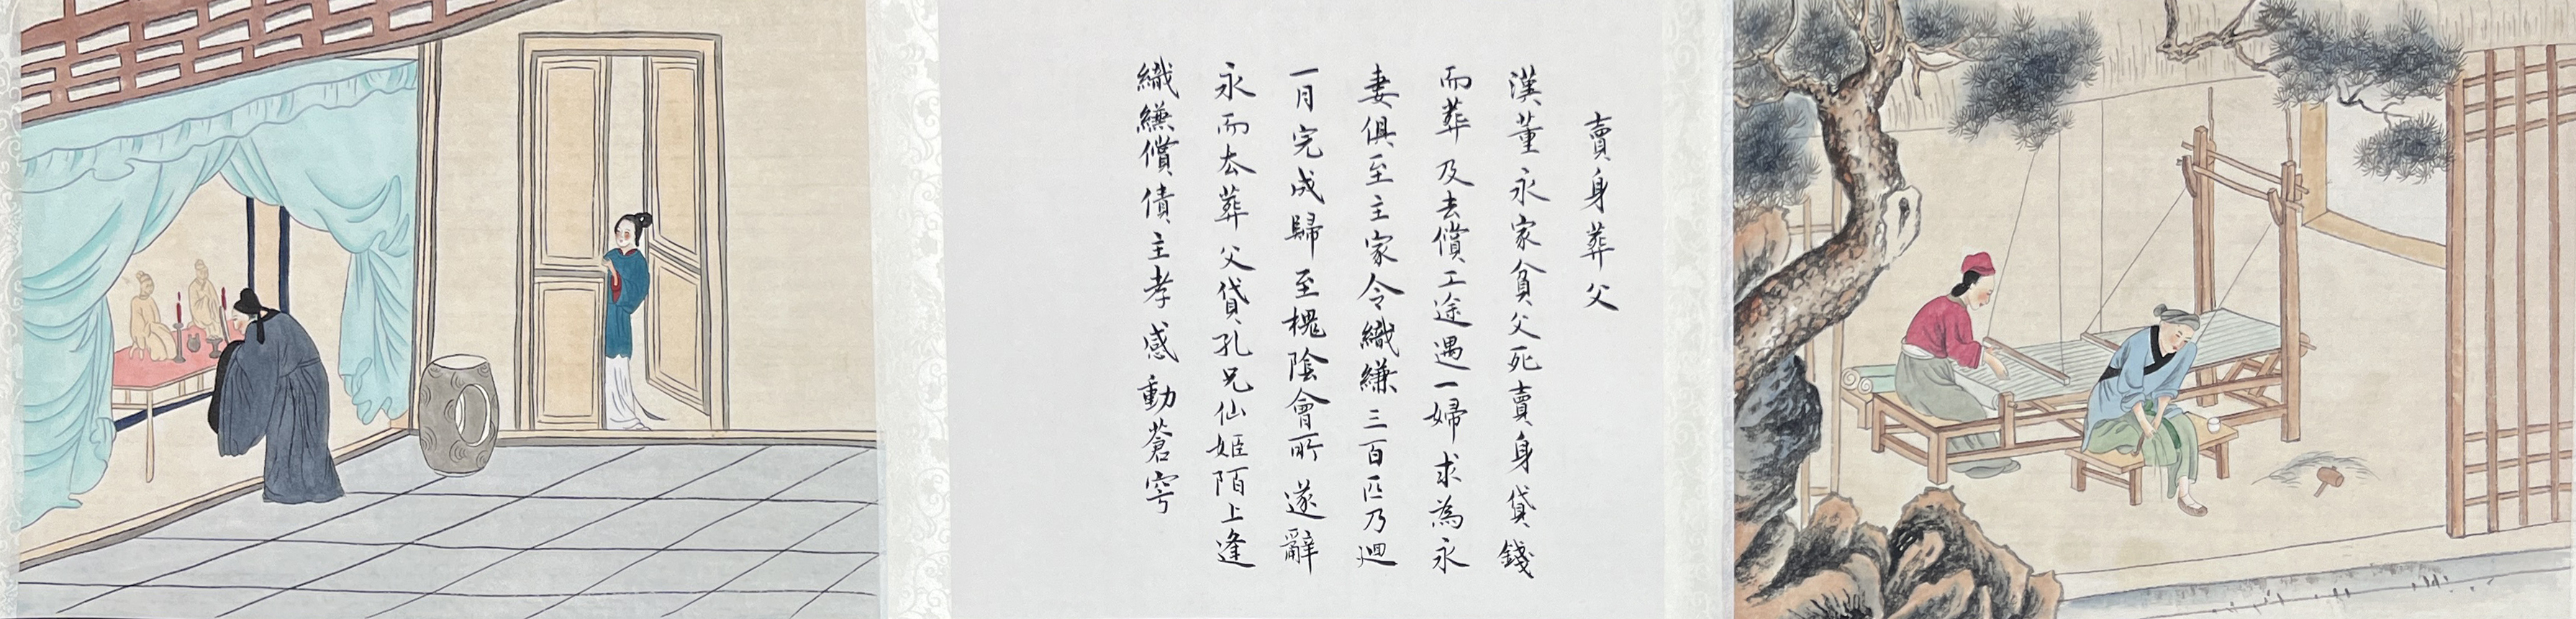 賣身葬父
漢董永家貧父死賣身貸錢
而葬及去償工途遇一婦求為永
妻俱至主家令織縑三百匹乃迴
一月完成歸至槐陰會所遂辭
永而去葬父貸孔兄仙姬陌上逢
織縑償債主孝感動蒼穹